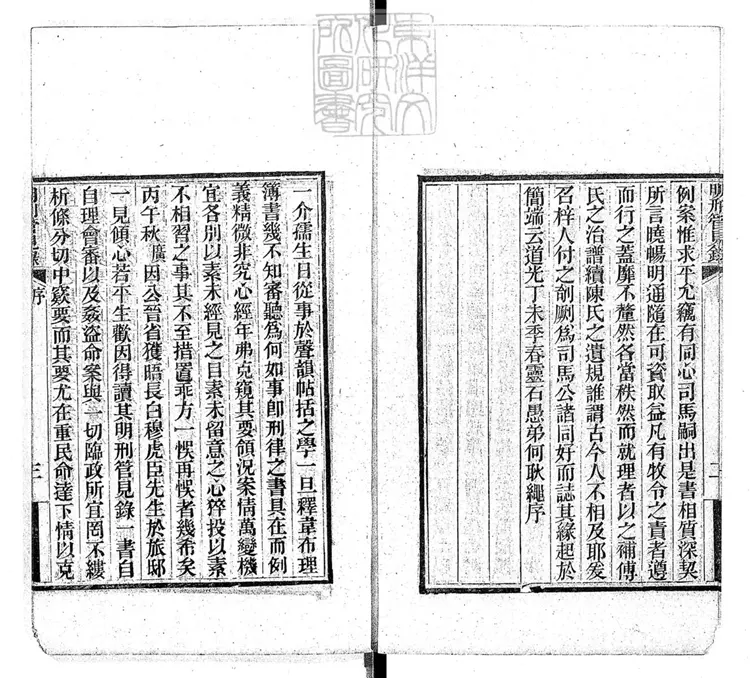 東洋文
化研究
所圖書
明刑管見錄
二
例案惟求平允竊有同心司馬嗣出是書相質深契
所言曉暢明通隨在可資取益凡有牧令之責者遵
而行之蓋靡不釐然各當秩然而就理者以之補傅
氏之治譜續陳氏之遺規誰謂古今人不相及耶爰
召梓人付之剞劂為司馬公諸同好而誌其緣起於
簡端云道光丁未季春靈石愚弟何耿繩序
一介孺生日從事於聲韻帖括之學一旦釋韋布理
簿書幾不知審聽為何如事卽刑律之書具在而例
義精微非究心經年弗克窺其要領況案情萬變機
宜各別以素未經見之目素未留意之心猝投以素
不相習之事其不至措置乖方一悞再悞者幾希矣
丙午秋廣因公晉省獲晤長白穆虎臣先生於旅邸
一見傾心若平生歡因得讀其明刑管見錄一書自
自理會審以及姦盜命案與一切臨政所宜罔不縷
析條分切中窾要而其要尤在重民命達下情以克
明刑管見錄
序
三